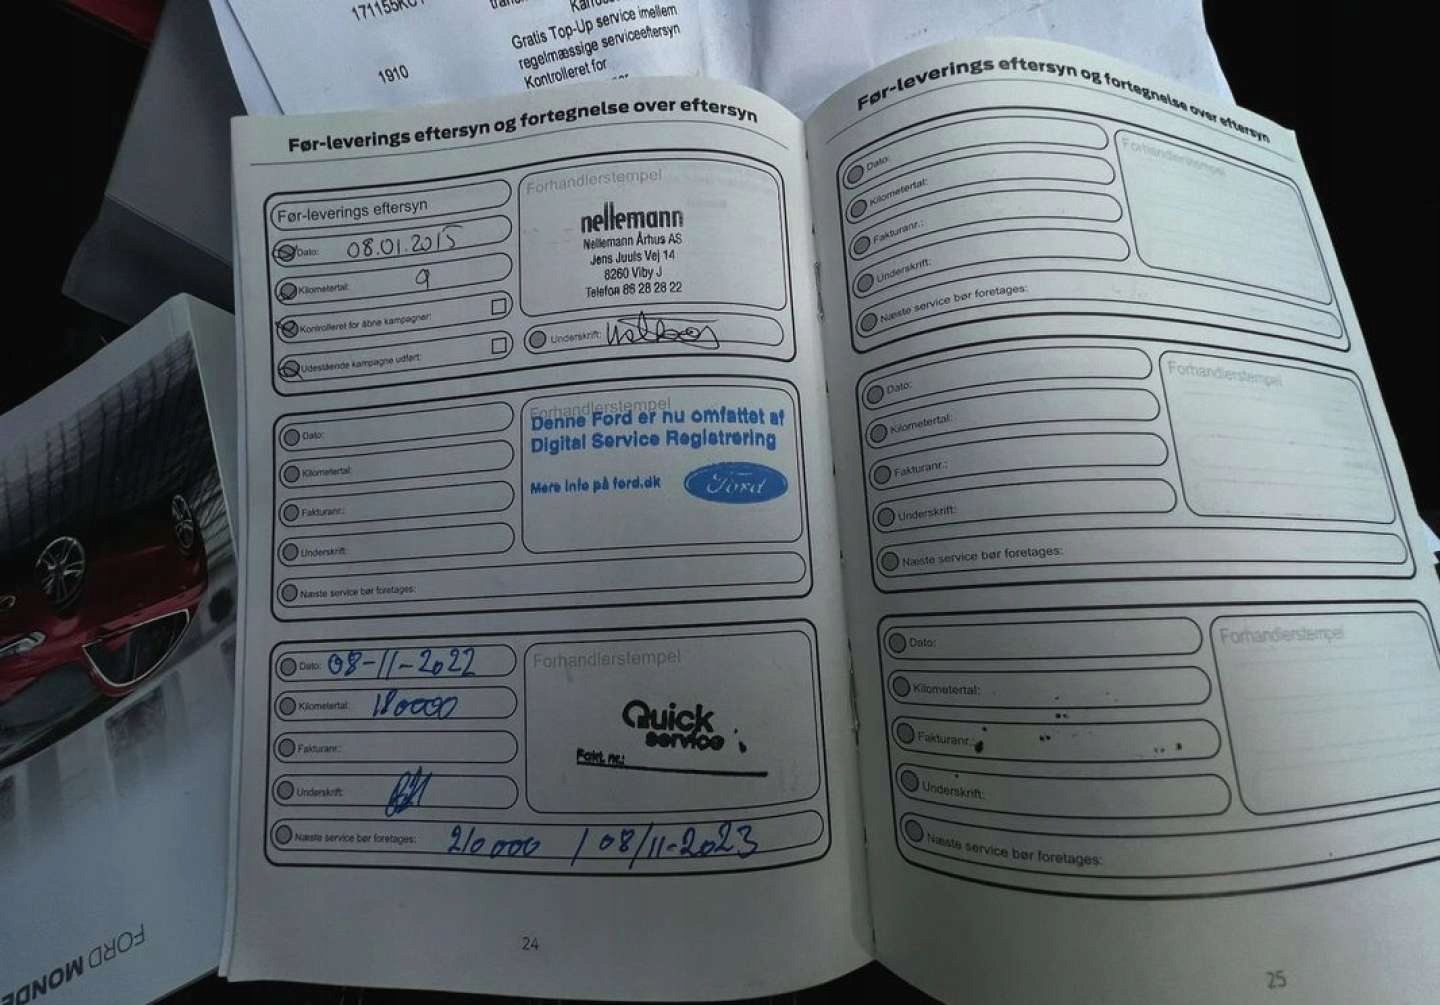 171155KC1
Gratis Top-Up service imellem
regelmæssige serviceeftersyn
1910
Kontrolleret for
Før-leverings eftersyn og fortegnelse over eftersyn
Før-leverings eftersyn
Dato: 08.01.2015
Kilometertal: 9
Kontrolleret for åbne kampagner:
Udestående kampagne udført:
Forhandlerstempel
nellemann
Nellemann Århus AS
Jens Juuls Vej 14
8260 Viby J
Telefon 86 28 28 22
Underskrift:
Dato:
Kilometertal:
Fakturanr.:
Underskrift:
Næste service bør foretages:
Forhandlerstempel
Denne Ford er nu omfattet af
Digital Service Registrering
Mere info på ford.dk
Ford
Dato: 08-11-2022
Kilometertal: 180000
Fakturanr.:
Underskrift:
Næste service bør foretages: 210000 / 08/11-2023
Forhandlerstempel
Quick
service
Fakt. nr.:
24
Før-leverings eftersyn og fortegnelse over eftersyn
Dato:
Kilometertal:
Fakturanr.:
Underskrift:
Næste service bør foretages:
Forhandlerstempel
Dato:
Kilometertal:
Fakturanr.:
Underskrift:
Næste service bør foretages:
Forhandlerstempel
Dato:
Kilometertal:
Fakturanr.:
Underskrift:
Næste service bør foretages:
Forhandlerstempel
25
FORD MONDE